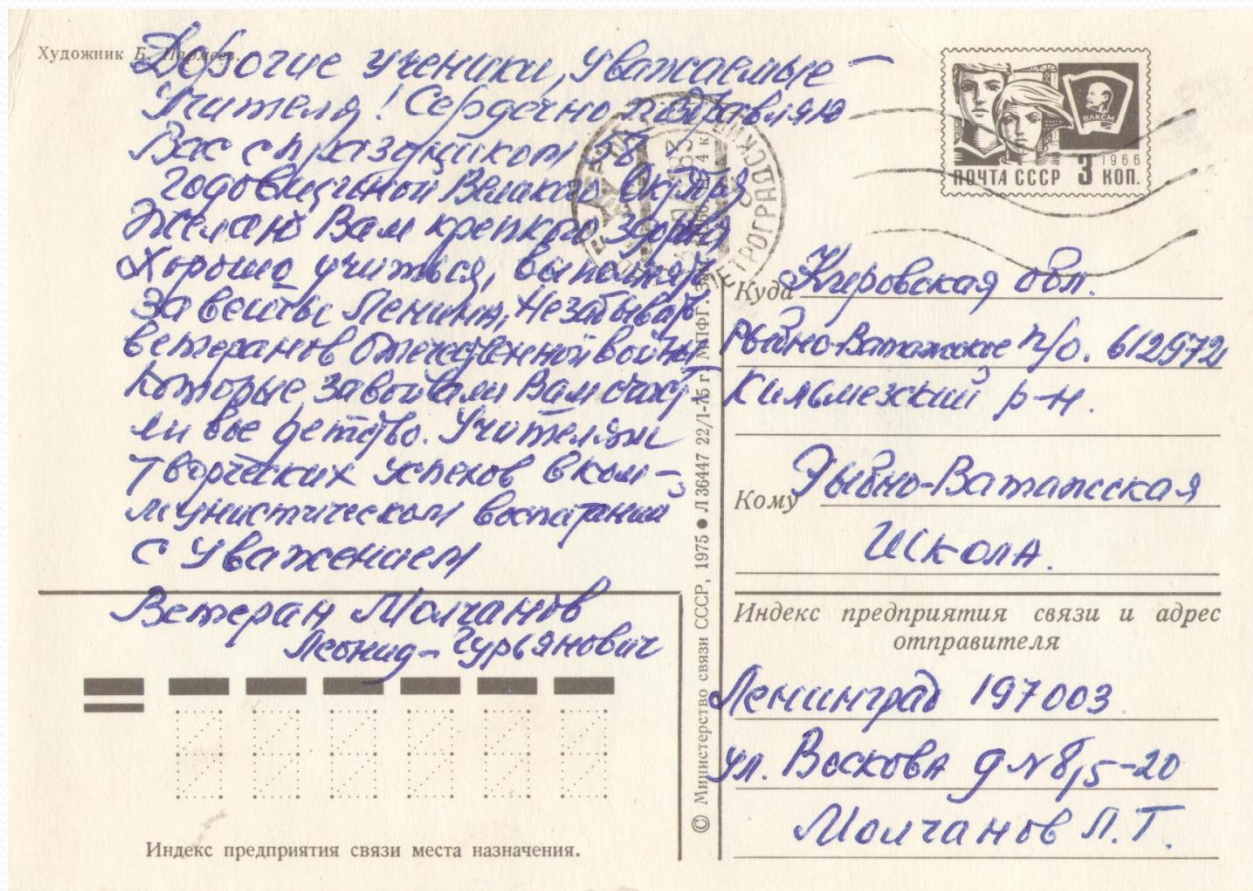 Художник Б. Пармеев.
Дорогие ученики, уважаемые
Учителя! Сердечно поздравляю
Вас с праздником
годовщиной Великого Октября
Желаю Вам крепкого здоровья
Хорошо учиться, выполнять
Заветы Ленина, Незабывать
ветеранов Отечественной войны
Которые завоевали Вам счаст
ли вое детство. Учителям
Творческих успехов в ком-
мунистическом воспитании
С уважением
Ветеран Молчанов
Леонид-Гурьянович
Индекс предприятия связи места назначения.
© Министерство связи СССР, 1975 ● Л 36447 22/I-75 г. МПФГ.
ПЕТРОГРАДСКИЙ
ВЛКСМ
1966
ПОЧТА СССР 3 КОП.
Куда Кировская обл.
Рыбно-Ватажское п/о. 612972
Кильмезский р-н.
Кому Рыбно-Ватажская
Школа.
Индекс предприятия связи и адрес
отправителя
Ленинград 197003
ул. Воскова д N 8,5-20
Молчанов Л. Г.